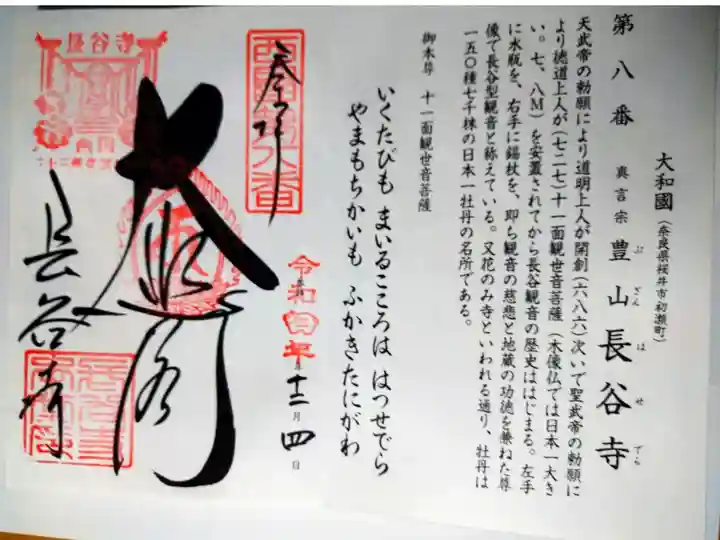 大和國（奈良県桜井市初瀬町）
第八番 真言宗 豊山長谷寺
ぶざん はせでら
天武帝の勅願により道明上人が開創（六八六）次いで聖武帝の勅願に
より徳道上人が（七二七）十一面観世音菩薩（木像仏では日本一大き
い。七、八M）を安置されてから長谷観音の歴史ははじまる。左手
に水瓶を、右手に錫杖を、即ち観音の慈悲と地蔵の功徳を兼ねた尊
像で長谷型観音と称えている。又花のみ寺といわれる通り、牡丹は
一五〇種七千株の日本一牡丹の名所である。
御本尊 十一面観世音菩薩
いくたびも まいるこころは はつせでら
やまもちかいも ふかきたにがわ
奉拝
西国第八番
大悲閣
令和四年十二月四日
長谷寺